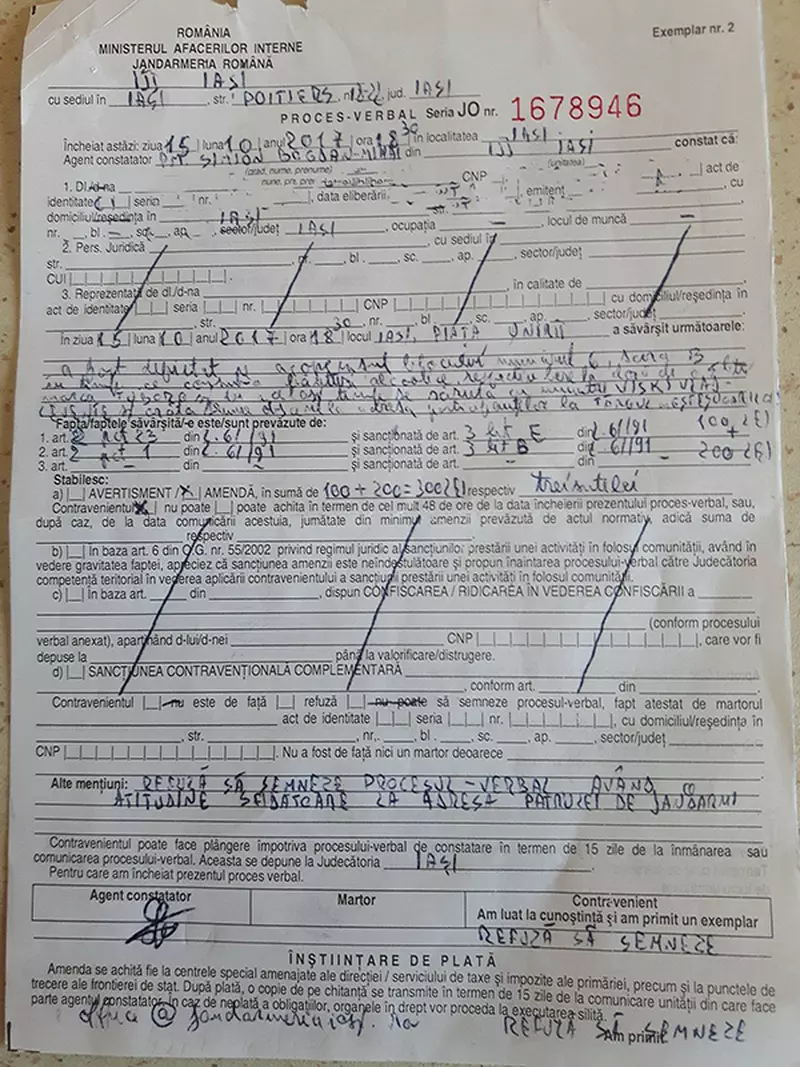 Exemplar nr. 2
ROMÂNIA
MINISTERUL AFACERILOR INTERNE
JANDARMERIA ROMÂNĂ
IJJ IAȘI
cu sediul în IAȘI, str. POITIERS, nr. jud. IAȘI
PROCES-VERBAL Seria JO nr. 1678946
Încheiat astăzi: ziua 15 luna 10 anul 2017 ora 18 30 în localitatea IAȘI constat că:
Agent constatator SIMION BOGDAN-MIHAI din IJJ IAȘI
(grad, nume, prenume) (unitatea)
1. Dl./d-na CNP act de
identitate CI seria nr. , data eliberării , emitent , cu
domiciliul/reședința în IAȘI str.
nr. , bl. – , sc. , ap. sector/județ IAȘI , ocupația – , locul de muncă –
2. Pers. Juridică , cu sediul în
str. , nr. , bl. , sc. , ap. , sector/județ
CUI
3. Reprezentată de dl./d-na , în calitate de
act de identitate seria nr. CNP cu domiciliul/reședința în
, str. , nr. , bl. , sc. , ap. , sector/județ
În ziua 15 luna 10 anul 2017 ora 18 30 locul IAȘI, PIAȚA UNIRII a săvârșit următoarele:
a fost depistat pe blocului numărul 6, scara B
în timp ce consuma băuturi alcoolice doză de
marca
la adresa
Fapta/faptele săvârșită/-e este/sunt prevăzute de:
1. art. 2 pct 23 din L. 61/91 și sancționată de art. 3 lit E din L. 61/91 100 LEI
2. art. 2 pct 1 din L. 61/91 și sancționată de art. 3 lit B din L. 61/91 200 LEI
3. art. – din – și sancționată de art. – din –
Stabilesc:
a) AVERTISMENT / X AMENDĂ, în sumă de 100 + 200 = 300 LEI respectiv trei sute lei
Contravenientul X nu poate poate achita în termen de cel mult 48 de ore de la data încheierii prezentului proces-verbal, sau,
după caz, de la data comunicării acestuia, jumătate din minimul amenzii prevăzută de actul normativ, adică suma de
respectiv
b) În baza art. 6 din O.G. nr. 55/2002 privind regimul juridic al sancțiunilor prestării unei activități în folosul comunității, având în
vedere gravitatea faptei, apreciez că sancțiunea amenzii este neîndestulătoare și propun înaintarea procesului-verbal către Judecătoria
competentă teritorial în vederea aplicării contravenientului a sancțiunii prestării unei activități în folosul comunității.
c) În baza art. din , dispun CONFISCAREA / RIDICAREA ÎN VEDEREA CONFISCĂRII a
(conform procesului
verbal anexat), aparținând d-lui/d-nei CNP , care vor fi
depuse la până la valorificare/distrugere.
d) SANCȚIUNEA CONTRAVENȚIONALĂ COMPLEMENTARĂ
, conform art. din
Contravenientul nu este de față refuză nu poate să semneze procesul-verbal, fapt atestat de martorul
act de identitate seria nr. , cu domiciliu/reședința în
, str. , nr. , bl. , sc. , ap. , sector/județ
CNP . Nu a fost de față nici un martor deoarece
Alte mențiuni: REFUZĂ SĂ SEMNEZE PROCESUL-VERBAL AVÂND O
ATITUDINE SFIDĂTOARE LA ADRESA PATRULEI DE JANDARMI
Contravenientul poate face plângere împotriva procesului-verbal de constatare în termen de 15 zile de la înmânarea sau
comunicarea procesului-verbal. Aceasta se depune la Judecătoria IAȘI
Pentru care am încheiat prezentul proces verbal.
Agent constatator Martor Contravenient
Am luat la cunoștință și am primit un exemplar
REFUZĂ SĂ SEMNEZE
ÎNȘTIINȚARE DE PLATĂ
Amenda se achită fie la centrele special amenajate ale direcției / serviciului de taxe și impozite ale primăriei, precum și la punctele de
trecere ale frontierei de stat. După plată, o copie de pe chitanță se transmite în termen de 15 zile de la comunicare unității din care face
parte agentul constatator. În caz de neplată a obligațiilor, organele în drept vor proceda la executarea silită.
office @ jandarmeriaiasi. ro REFUZĂ SĂ SEMNEZE
Am primit